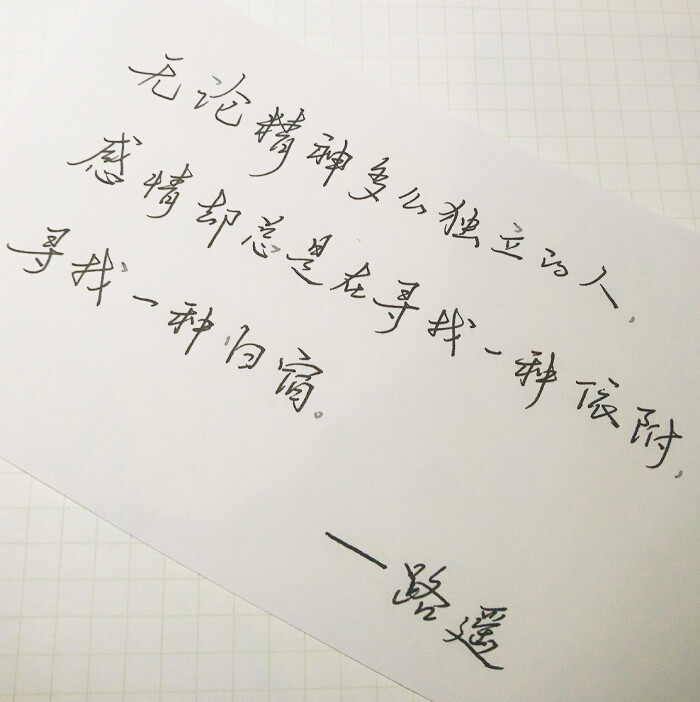 无论精神多么独立的人，
感情却总是在寻找一种依附，
寻找一种归宿。
—路遥